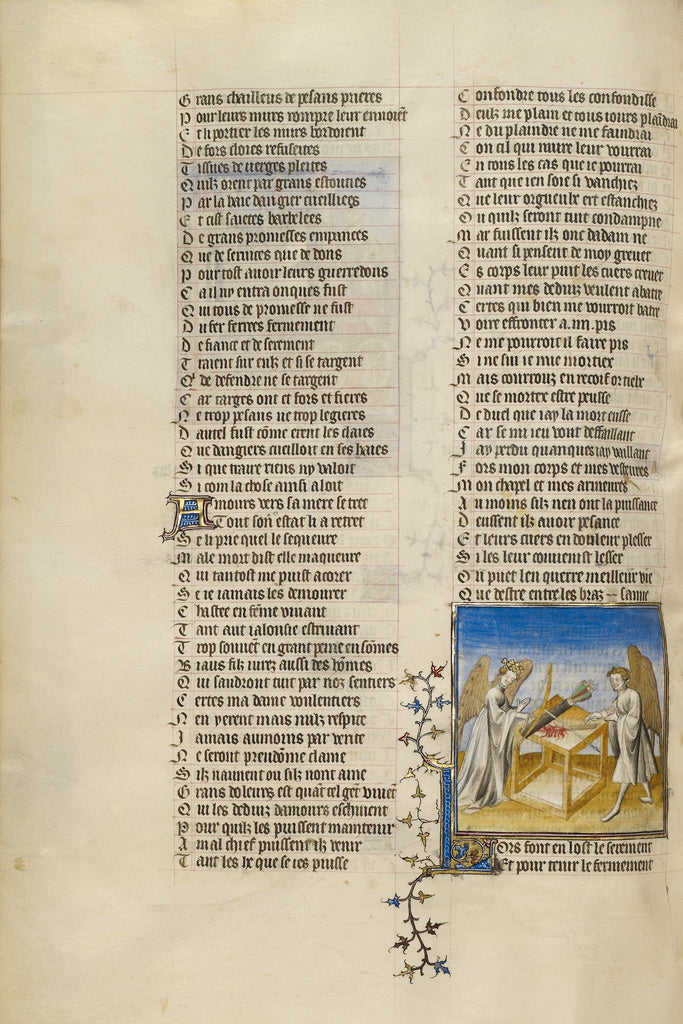 Grans chailleus de pesans prieres
Pour leurs murs rompre leur enuoient
Et li portier les murs bordoient
De fors cloies refuseices
Tissues de uerges pleites
Quilz orent par grans estouties
Par la haie dangier cueillies
Et cist saietes barbelees
De grans promesses empanees
Que de seruices que de dons
Pour tost auoir leurs guerredons
Car il ny entra onques fust
Qui tous de promesse ne fust
Du fer ferres fermement
De fiance et de serement
Traient sur eulz et si se targent
Q' de defendre ne se targent
Car targes ont et fors et fieres
Ne trop pesans ne trop legieres
Dautel fust cōme erent les claies
Que dangiers cueilloit en ses haies
Si que traire riens ny valoit
Si com la chose ainsi aloit
Amours vers sa mere se tret
Tout son estat li a retret
Se li prie quel le sequeure
Male mort dist elle maqueure
Qui tantost me puist acorer
Se ie iamais les demourer
Chastee en fēme viuant
Tant aut ialousie estriuant
Trop souuēt en grant peine en sōmes
Biaus filz iurez aussi des hōmes
Qui saudront tuit par noz sentiers
Certes ma dame voulentiers
Nen yerent mais nulz respite
Jamais aumoins par verite
Ne seront preudōme clame
Silz naiment ou silz nont ame
Grans doleurs est quāt tel gēt viuēt
Qui les deduiz damours eschiuent
Pour quilz les puissent maintenir
A mal chief puissent ilz venir
Tant les he que se ies puisse
Confondre tous les confondisse
Deulz me plain et tous iours plaīdrai
Ne du plaindre ne me faindrai
Con cil qui nuire leur vourrai
En tous les cas que ie pourrai
Tant que ien soie si vanchiez
Que leur orgueulz ert estanchiez
Ou quilz seront tuit condampne
Mar fuissent ilz onc dadam ne
Quant si pensent de moy greuer
Es corps leur puit les cuers creuer
Quant mes deduiz veulent abatre
Certes qui bien me vourroit batre
Voire effronter a .iiii. pis
Ne me pourroit il faire pis
Si ne sui ie mie mortiex
Mais courrouz en recoif or tielx
Que se mortex estre peusse
De duel que iay la mort eusse
Car se mi ieu vont deffaillant
Jay perdu quanques iay vaillant
Fors mon corps et mes vesteures
Mon chapel et mes armeures
Au moins silz nen ont la puissance
Deussent ilz auoir pesance
Et leurs cuers en douleur plesser
Si les leur conuenist lesser
Ou puet len querre meilleur vie
Que destre entre les braz samie
Lors font en lost le serement
Et pour tenir le fermement